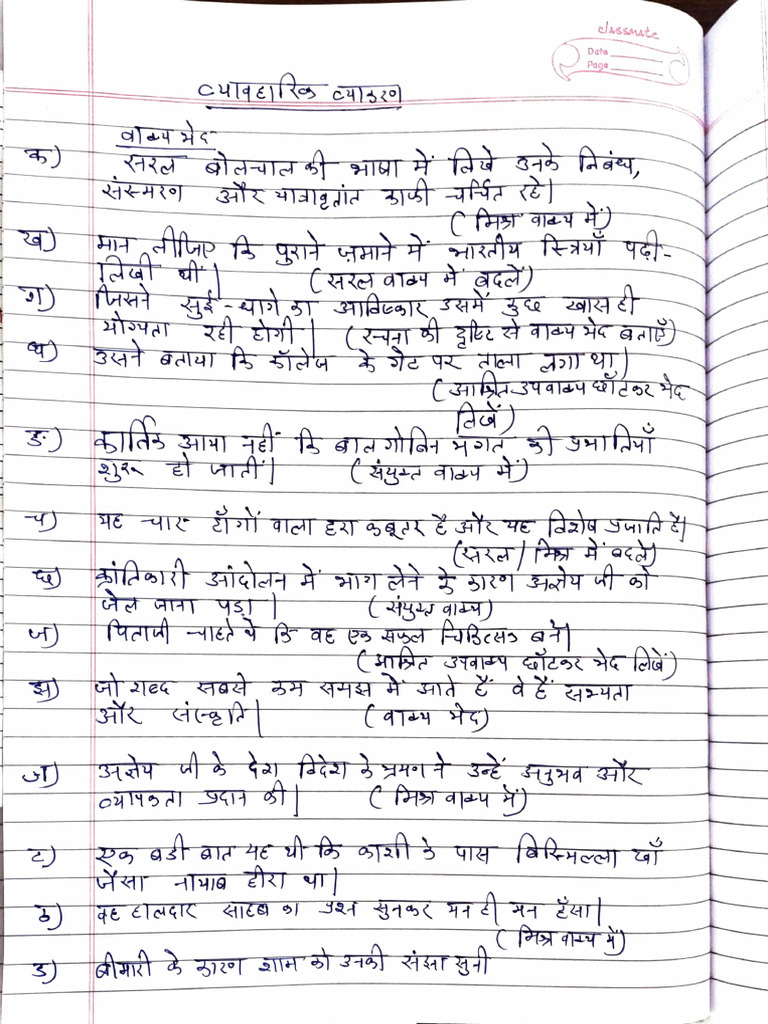 classmate
Date
Page
व्यावहारिक व्याकरण
वाक्य भेद
क) सरल बोलचाल की भाषा में लिखे उनके निबंध,
संस्मरण और यात्रावृतांत काफी चर्चित रहे।
(मिश्र वाक्य में)
ख) मान लीजिए कि पुराने ज़माने में भारतीय स्त्रियाँ पढ़ी-
लिखी थीं। (सरल वाक्य में बदलें)
ग) जिसने सुई-धागे का आविष्कार उसमें कुछ खास ही
योग्यता रही होगी। (रचना की दृष्टि से वाक्य भेद बताएँ)
घ) उसने बताया कि कॉलेज के गेट पर ताला लगा था।
(आश्रित उपवाक्य छाँटकर भेद
लिखें)
ङ) कार्तिक आया नहीं कि बालगोबिन भगत की प्रभातियाँ
शुरू हो जातीं। (संयुक्त वाक्य में)
च) यह चार टाँगों वाला हरा कबूतर है और यह विशेष प्रजाति है।
(सरल/मिश्र में बदलें)
छ) क्रांतिकारी आंदोलन में भाग लेने के कारण अज्ञेय जी को
जेल जाना पड़ा। (संयुक्त वाक्य)
ज) पिताजी चाहते थे कि वह एक सफल चिकित्सक बने।
(आश्रित उपवाक्य छाँटकर भेद लिखें)
झ) जो शब्द सबसे कम समझ में आते हैं वे हैं सभ्यता
और संस्कृति। (वाक्य भेद)
ञ) अज्ञेय जी के देश विदेश के भ्रमण ने उन्हें अनुभव और
व्यापकता प्रदान की। (मिश्र वाक्य में)
ट) एक बडी बात यह थी कि काशी के पास बिस्मिल्ला खाँ
जैसा नायाब हीरा था।
ठ) वह हालदार साहब का प्रश्न सुनकर मन ही मन हँसा।
(मिश्र वाक्य में)
ड) बीमारी के कारण शाम को उनकी संझा सुनी